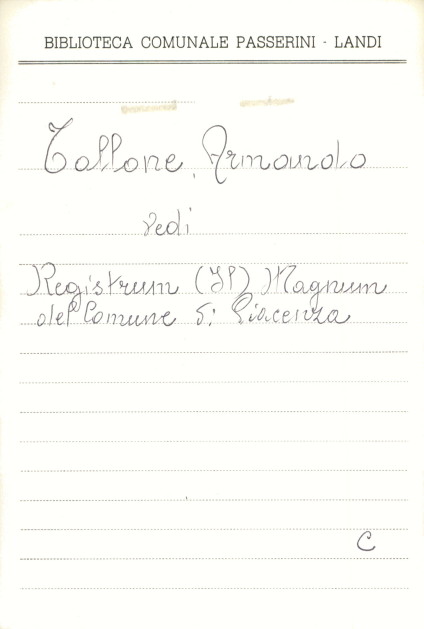 BIBLIOTECA COMUNALE PASSERINI - LANDI
Tallone, Armando
vedi
Registrum (Il) Magnum
del Comune di Piacenza
C